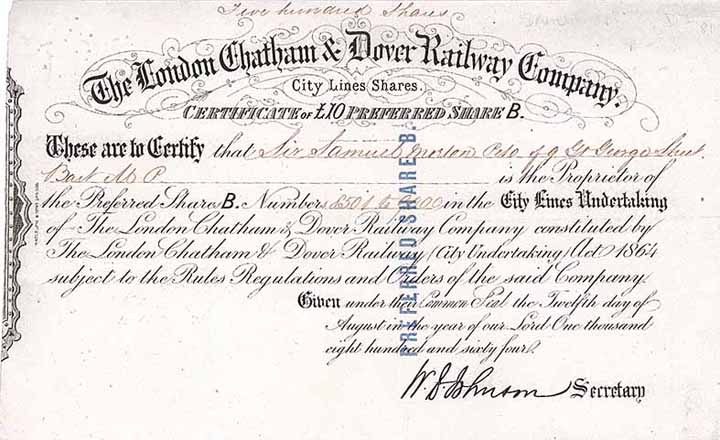 Five hundred Shares
The London Chatham & Dover Railway Company.
City Lines Shares.
Certificate of £10 Preferred Share B.
These are to Certify that Sir Samuel Morton Peto of 9 Gt George Street
Bart M P is the Proprietor of
the Preferred Share B. Numbers 8501 to 9000 in the City Lines Undertaking
of The London Chatham & Dover Railway Company constituted by
The London Chatham & Dover Railway (City Undertaking) Act 1864
subject to the Rules Regulations and Orders of the said Company.
Given under their Common Seal the Twelfth day of
August in the year of our Lord One thousand
eight hundred and sixty four.
W. D. Johnson Secretary
PREFERRED SHARE B.